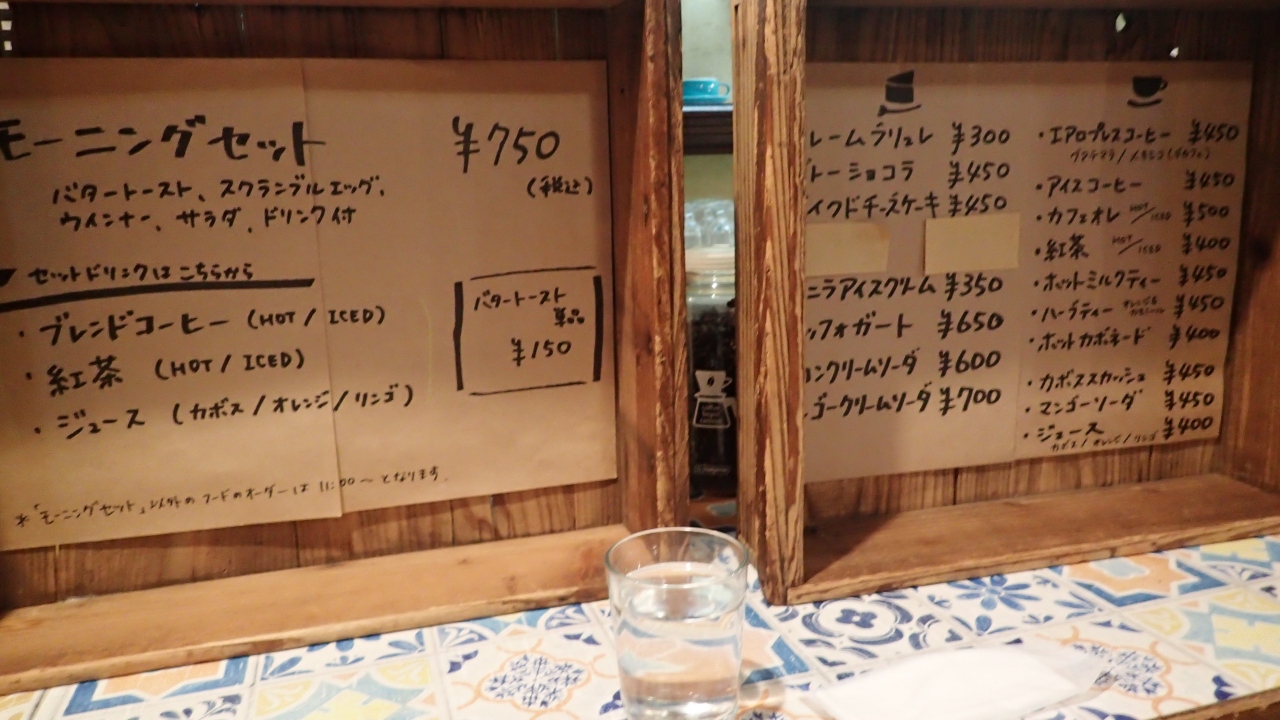 モーニングセット ¥750
(税込)
バタートースト、スクランブルエッグ、
ウインナー、サラダ、ドリンク付
セットドリンクはこちらから
・ブレンドコーヒー (HOT / ICED)
・紅茶 (HOT / ICED)
・ジュース (カボス / オレンジ / リンゴ)
バタートースト
単品
¥150
※「モーニングセット」以外のフードのオーダーは 11:00〜となります.
レームブリュレ ¥300
トーショコラ ¥450
イクドチーズケーキ ¥450
ニラアイスクリーム ¥350
ッフォガート ¥650
ンクリームソーダ ¥600
ゴークリームソーダ ¥700
・エアロプレスコーヒー ¥450
グアテマラ / メキシコ (デカフェ)
・アイスコーヒー ¥450
・カフェオレ HOT/ICED ¥500
・紅茶 HOT/ICED ¥400
・ホットミルクティー ¥450
・ハーブティー ¥450
・ホットカボネード ¥400
・カボススカッシュ ¥450
・マンゴーソーダ ¥450
・ジュース ¥400
カボス / オレンジ / リンゴ